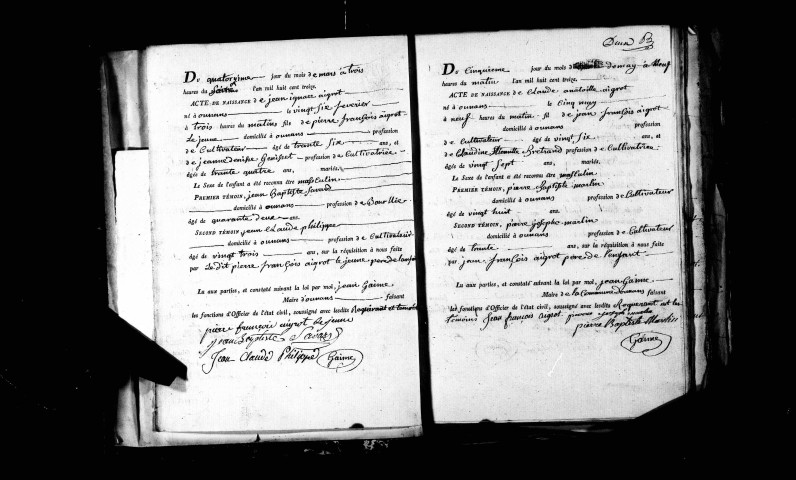 Du quatorzieme jour du mois de mars à trois
heures du l'an mil huit cent treize.
ACTE DE NAISSANCE de jean ignace aigrot
né à ounans le vingt six fevrier
à trois heures du matin fils de pierre françois aigrot
Le jeune domicilié à ounans profession
de Cultivateur âgé de trente Six ans, et
de jeanne denise profession de Cultivatrice
âgés de trente quatre ans, mariés.
Le Sexe de l'enfant a été reconnu être masculin
PREMIER TÉMOIN, jean Baptiste Savard
domicilié à ounans profession de
âgé de quarante deux ans.
SECOND TÉMOIN jean Claude philippe
domicilié à ounans profession de Cultivateur
âgé de vingt trois ans, sur la réquisition à nous faite
par Le dit pierre françois aigrot le jeune pere de l'enfant
Lu aux parties, et constaté suivant la loi par moi, jean Gaime
Maire d'ounans faisant
les fonctions d'Officier de l'état civil, soussigné avec lesdits Requerant et temoins
pierre françois aigrot le jeune
jean Baptiste Savard
Jean Claude Philippe Gaime
Deux
Du Cinquieme jour du mois de may à neuf
heures du matin l'an mil huit cent treize.
ACTE DE NAISSANCE de Claude anatoille aigrot
né à ounans le Cinq may
à neuf heures du matin fil de jean françois aigrot
domicilié à ounans profession
de Cultivateur âgé de vingt six ans, et
de Claudine Bertrand profession de Cultivatrice
âgés de vingt Sept ans, mariés.
Le Sexe de l'enfant a été reconnu être masculin
PREMIER TÉMOIN, pierre Baptiste marlin
domicilié à ounans profession de Cultivateur
âgé de vingt huit ans,
SECOND TÉMOIN, pierre josephe marlin
domicilié à ounans profession de Cultivateur
âgé de trente ans, sur la réquisition à nous faite
par jean françois aigrot pere de l'enfant
Lu aux parties, et constaté suivant la loi par moi, jean Gaime
Maire de la Commune d'ounans faisant
les fonctions d'Officier de l'état civil, soussigné avec lesdits Requerant et les
temoins Jean francois aigrot pierre joseph marlin
pierre Baptiste Marlin
Gaime